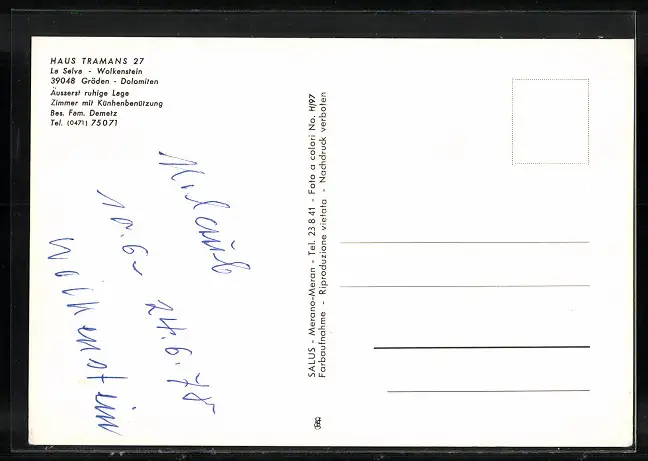 HAUS TRAMANS 27
La Selva - Wolkenstein
39048 Gröden - Dolomiten
Äusserst ruhige Lage
Zimmer mit Kühenbenützung
Bes. Fam. Demetz
Tel. (0471) 75071
Urlaub
10.6 - 24.6.78
Wolkenstein
SALUS - Merano-Meran - Tel. 23 8 41 - Foto a colori No. H/97
Farbaufnahme - Riproduzione vietata - Nachdruck verboten